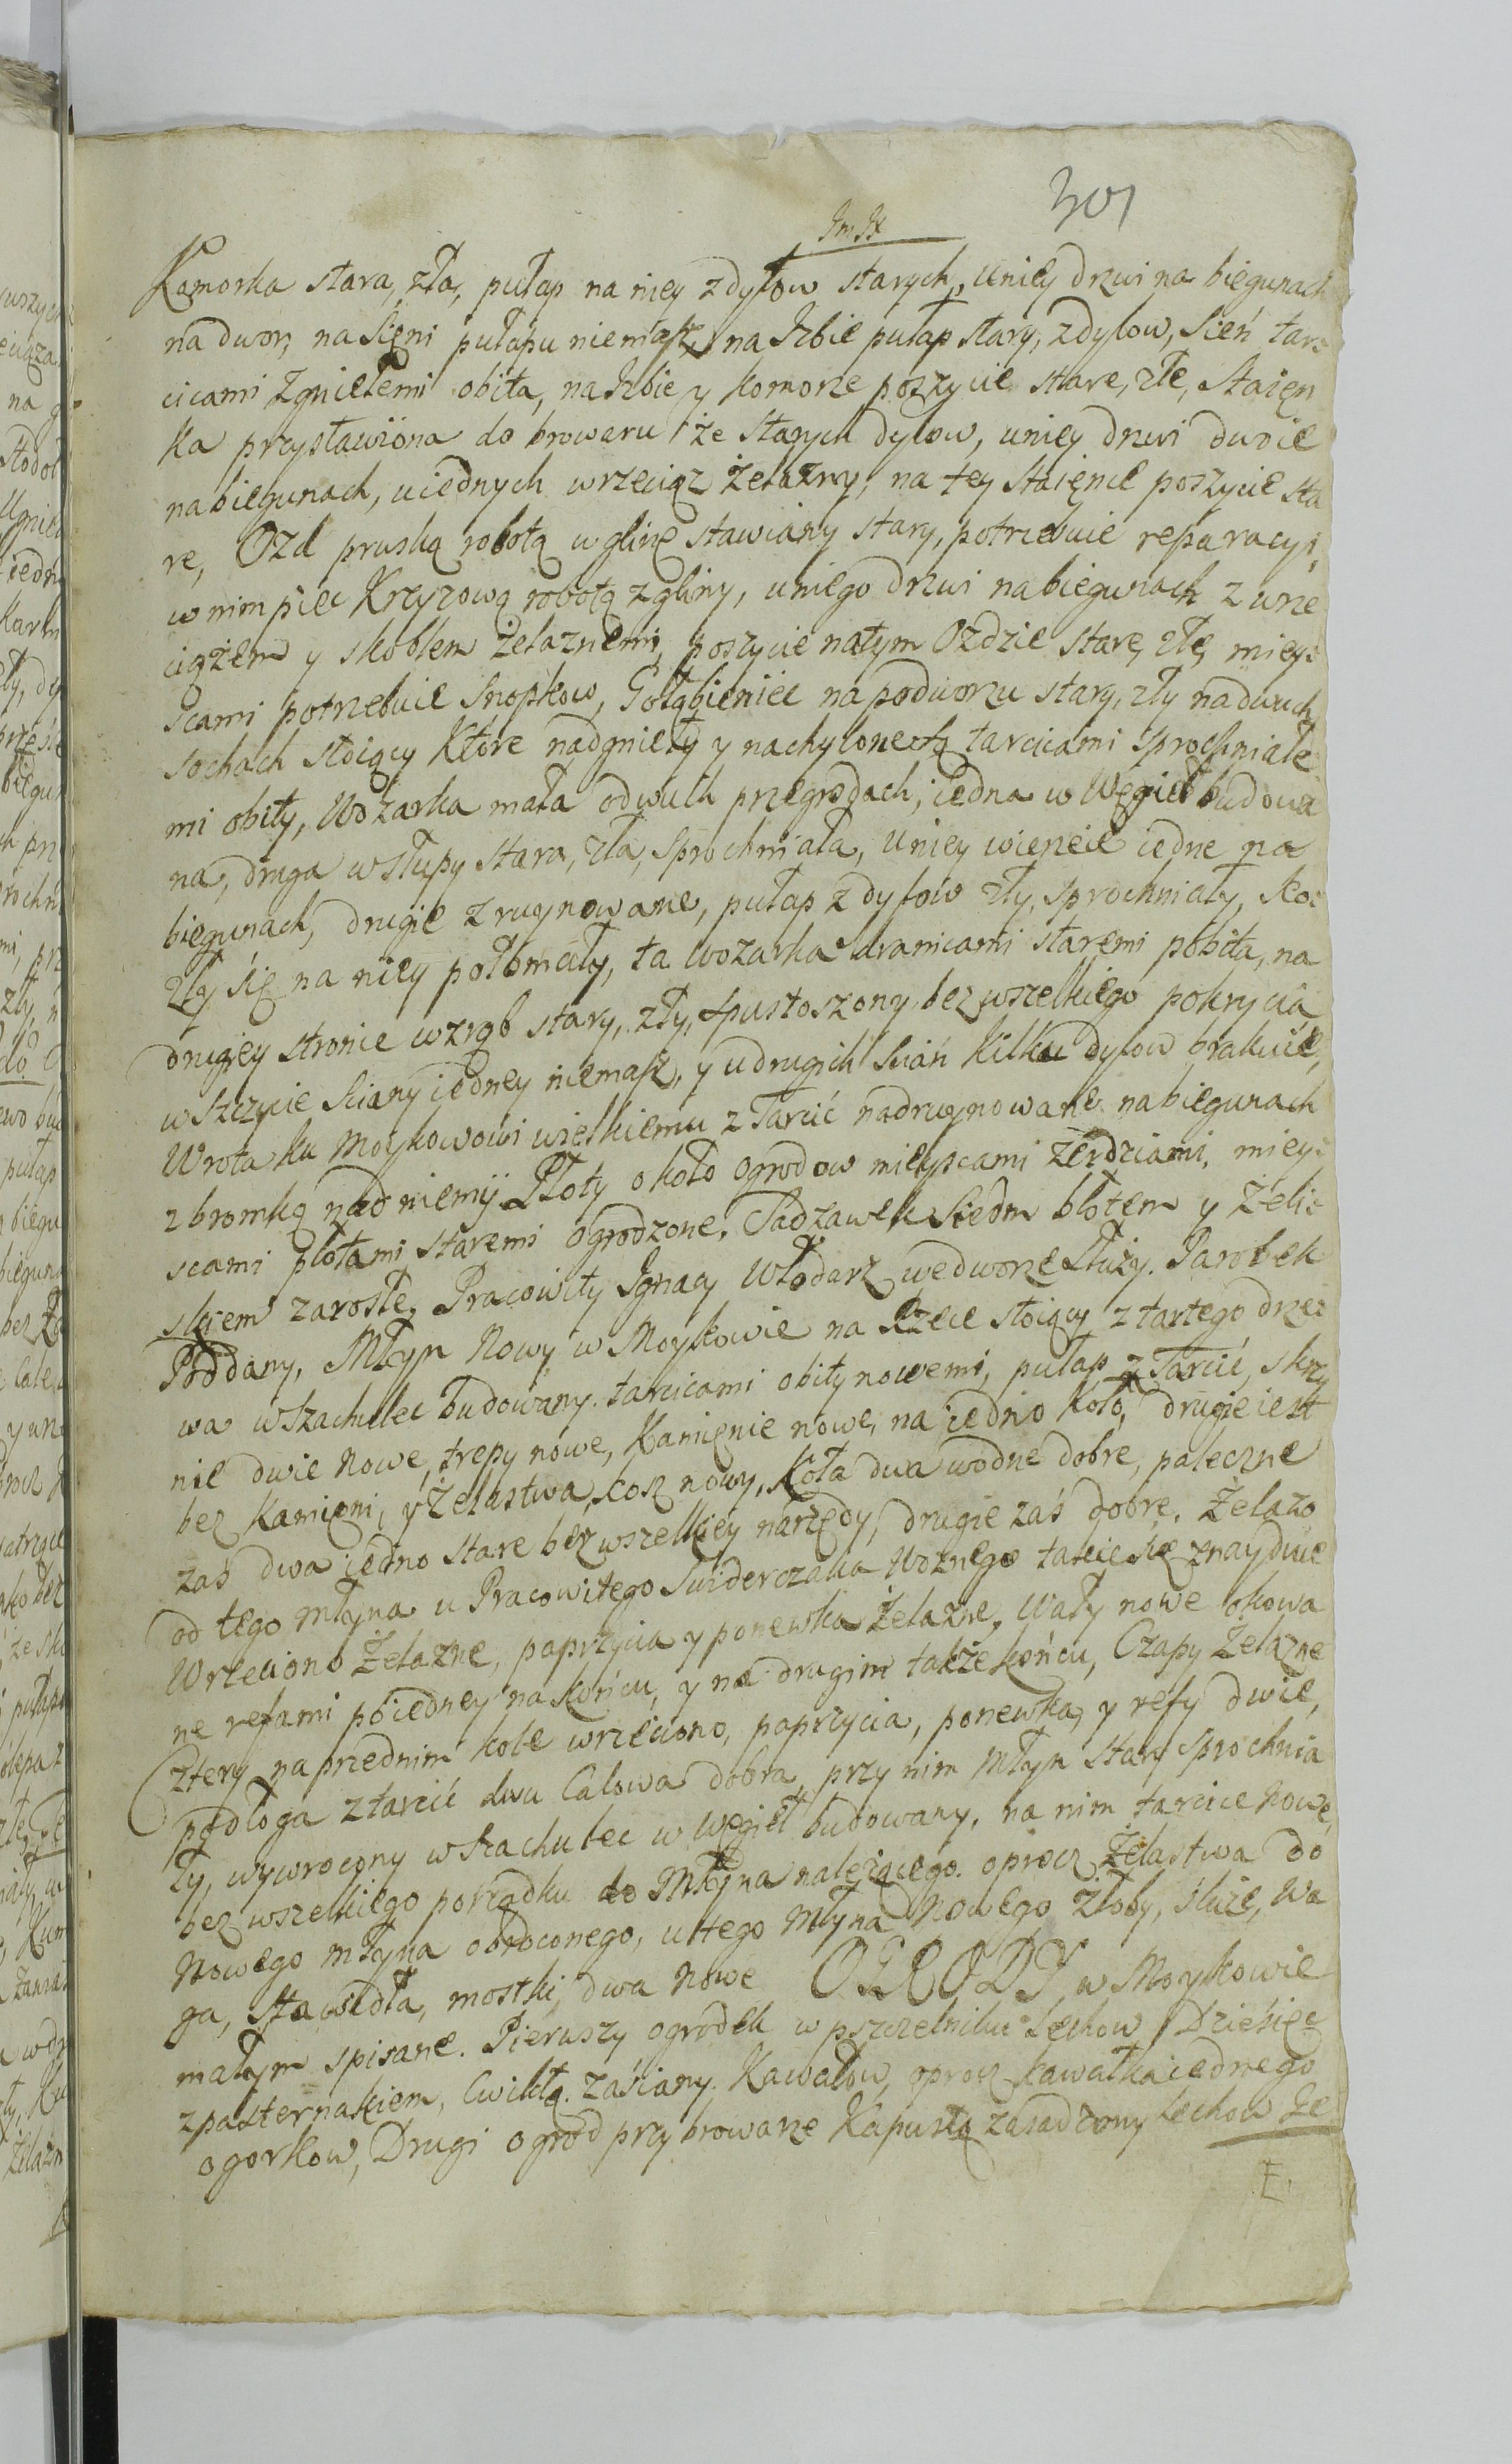 301
Kamorka stara, zła, pułap na niey z dylow starych, u niey drzwi na biegunach
na dwor, na Sięni pułapu niemasz, na Izbie pułap stary, z dylow, Sień tar=
cicami zgniełemi obita, na Izbie y komorze poszycie stare, złe, Staięn
ka przystawiona do browaru ze starych dylow, u niey drzwi dwoie
na biegunach, u iednych wrzeciąz żelazny, na tey Staięnce poszycie sta
re, Ozd pruską robotą w glinę stawiany stary, potrzebuie reparacyi,
w nim piec Krzyzową robotą z gliny, u niego drzwi na biegunach z wrze
ciążem y skoblem żelaznemi, poszycie na tym Oździe stare, złe, mieys=
scami potrzebuie snopkow, Gołąbieniec na podworzu stary, zły na dwuch
sochach stoiący Które nadgniełły y nachylone są tarcicami sprochniałe
mi obity, Wozarka mała o dwuch przegrodach, iedna w Węgieł budowa
na, druga w słupy stara, zła, sprochniała, u niey wierzeie iedne na
biegunach, drugie zruynowane, pułap z dylow zły, sprochniały, Koz
zły się na niey połomały, ta wozarka dranicami staremi pobita, na
drugiey stronie wzrąb stary, zły, spustoszony bez wszelkiego pokrycia
w szczycie sciany iedney niemasz, y u drugich scian kilku dylow brakuie,
Wrota ku Moykowowi wielkiemu z Tarcić nadruynowane na biegunach
z bromką nad niemi, Płoty około ogrodow mieyscami żerdziami, mieys=
scami płotami staremi ogrodzone. Sadzawek siedm błotem y żelis=
skiem zarosłe, Pracowity Ignacy Włodarz we dworze służy. Parobek
Poddany, Młyn Nowy w Moykowie na Rzece stoiący z tartego drze=
wa w szachulec budowany tarcicami obity nowemi, pułap z Tarcić, skrzy
nie dwie nowe, trepy nowe, Kamięnie nowe, na iedno koło, drugie iest
bez Kamięni, y Żelastwa, kosz nowy, Koła dwa wodne dobre, paleczne
zaś dwa iedno stare bez wszelkiey narzędy, drugie zaś dobre. Żelazo
od tego młyna u Pracowitego Swiderczaka Woznego takie się znayduie
Wrzeciono Żelazne, paprzyca y ponewka żelazne, Wały nowe okowa
ne refami po iedney na końcu, y na drugim także końcu, Czapy żelazne
Cztery na przednim kole wrzeciono, paprzyca, ponewka, y refy dwie,
podłoga z tarcić dwu Calowa dobra, przy nim Młyn stary sprochnia
ły, wywrocony w szachulec w Węgieł budowany, na nim tarcice nowe,
bez wszelkiego porządku do Młyna należącego oprocz Żelastwa do
Nowego młyna obroconego, u tego Młyna Nowego Złoby, śluze, Wa
ga, Stawidła, mostki dwa nowe OGRODY w Moykowie
małym spisane. Pierwszy ogrodek w pszczelniku Lechow Dziesięć
z pasternakiem, Cwikłą zasiany. Kawałow, oprocz kawałka iednego
ogorkow, Drugi ogrod przy browarze Kapustą zasadzony Lechow ze
E.